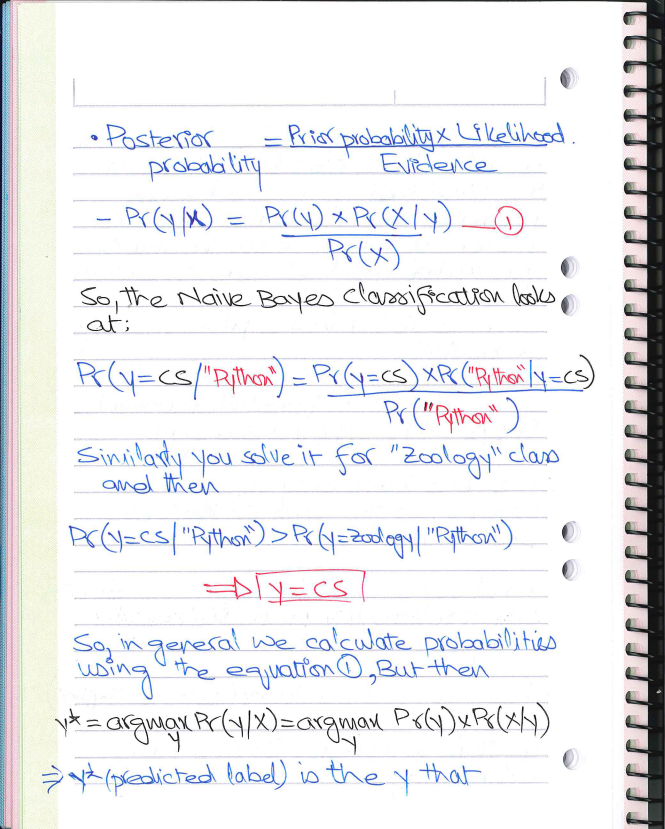 • Posterior = Prior probability x Likelihood.
probability Evidence
- Pr(y/X) = Pr(y) x Pr(X/y) — ①
Pr(X)
So, the Naive Bayes Classification looks
at:
Pr(y=CS/"Python") = Pr(y=CS) x Pr("Python"/y=CS)
Pr("Python")
Similarly you solve it for "Zoology" class
and then
Pr(y=CS/"Python") > Pr(y=zoology/"Python")
⇒ y=CS
So, in general we calculate probabilities
using the equation ①, But then
y* = argmax Pr(y/X) = argmax Pr(y) x Pr(X/y)
y y
⇒ y* (predicted label) is the y that